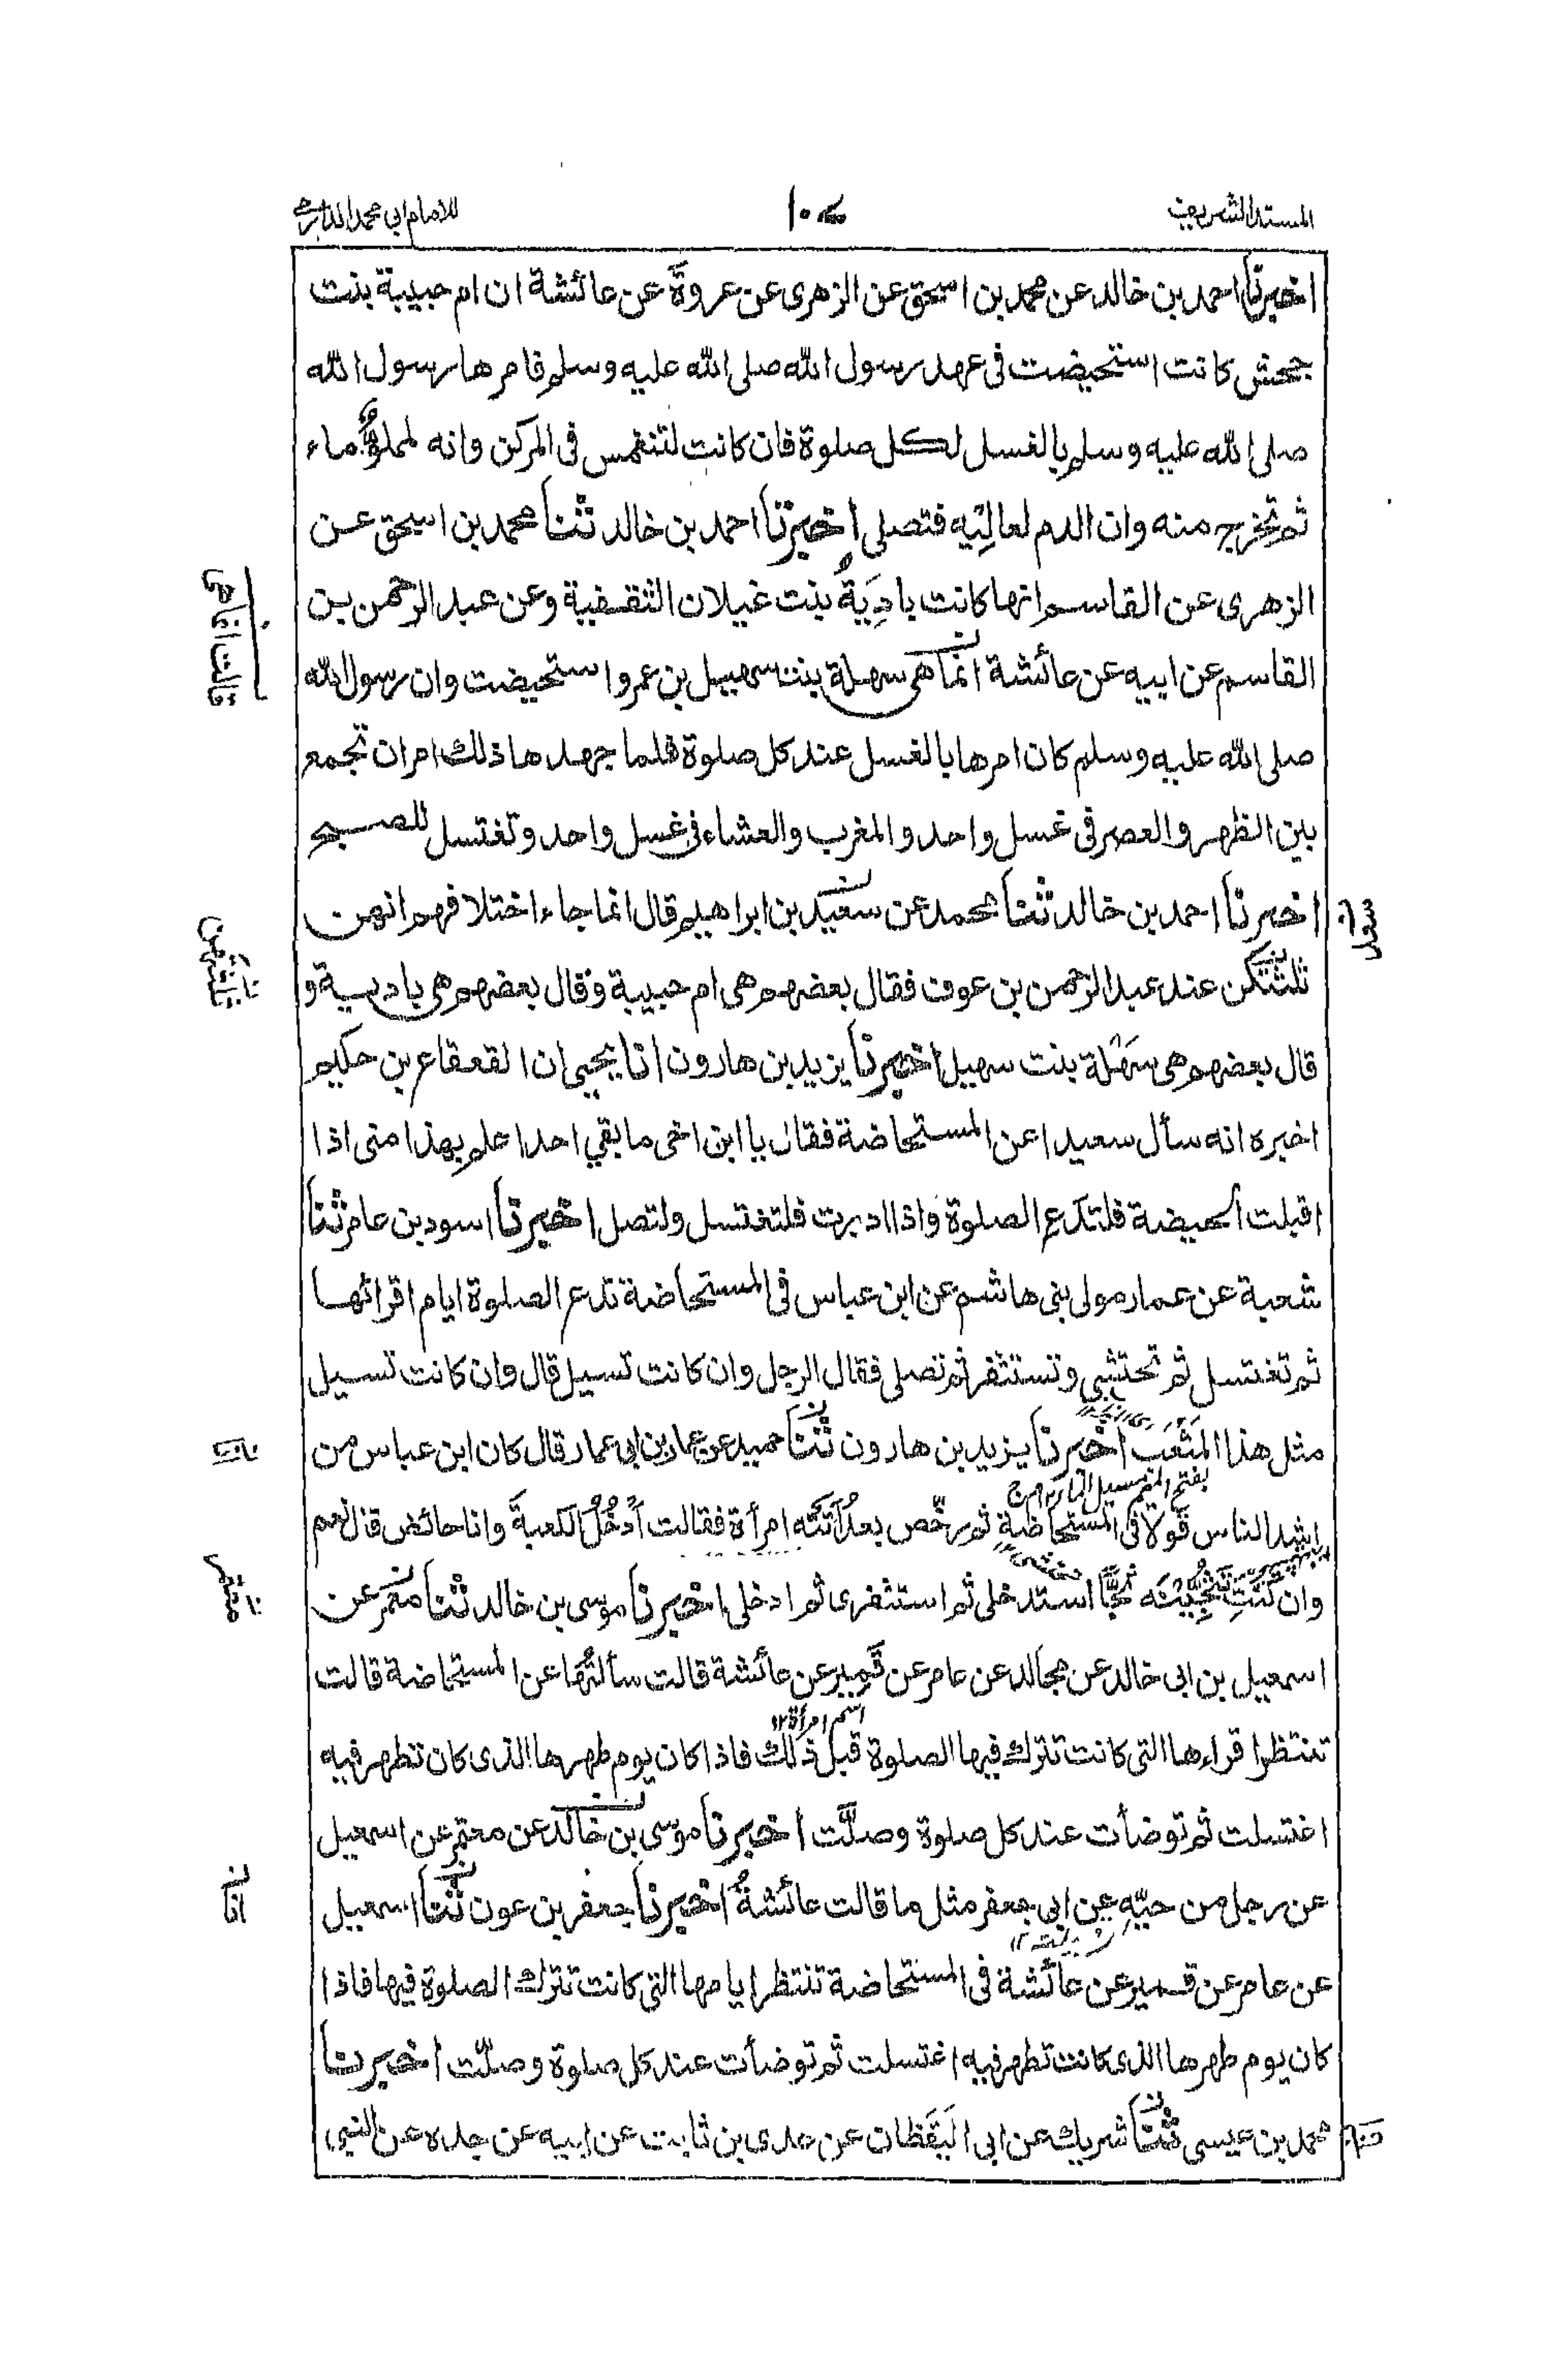 المسند الشريف
للامام ابي محمد الدارمي
اخبرنا احمد بن خالد عن محمد بن اسحق عن الزهرى عن عروة عن عائشة ان ام حبيبة بنت
جحش كانت استحيضت فى عهد رسول الله صلى الله عليه وسلم فامرها رسول الله
صلى الله عليه وسلم بالغسل لكل صلوة فان كانت لتنغمس فى المركن وانه لمملوٌ ماء
ثم تخرج منه وان الدم لعالِيَه فتصلى اخبرنا احمد بن خالد ثنا محمد بن اسحق عن
الزهرى عن القاسم انها كانت بادِيَةُ بنت غيلان الثقفية وعن عبد الرحمن بن
القاسم عن ابيه عن عائشة انما هى سهلة بنت سهيل بن عمرو استحيضت وان رسول الله
قالت انما هى
صلى الله عليه وسلم كان امرها بالغسل عند كل صلوة فلما جهدها ذلك امر ان تجمع
بين الظهر والعصر فى غسل واحد والمغرب والعشاء فى غسل واحد وتغتسل للصبح
اخبرنا احمد بن خالد ثنا محمد عن سعيد بن ابراهيم قال انما جاء اختلافهم انهن
سعد
ثلثتكن عند عبد الرحمن بن عوف فقال بعضهم هى ام حبيبة وقال بعضهم هى بادية و
ثلثتهن
قال بعضهم هى سَهْلة بنت سهيل اخبرنا يزيد بن هارون انا يحيى ان القعقاع بن حكيم
اخبره انه سأل سعيدا عن المستحاضة فقال يا ابن اخى ما بقي احد اعلم بهذا منى اذا
اقبلت الحيضة فلتدع الصلوة واذا ادبرت فلتغتسل ولتصل اخبرنا اسود بن عامر ثنا
شعبة عن عمار مولى بنى هاشم عن ابن عباس فى المستحاضة تدع الصلوة ايام اقرائها
ثم تغتسل ثم تحتشى وتستثفر ثم تصلى فقال الرجل وان كانت تسيل قال وان كانت تسيل
مثل هذا المَثْعَب اخبرنا يزيد بن هارون ثنا حميد عن عمار بن ابى عمار قال كان ابن عباس من
اشد الناس قولا فى المستحاضة ثم رخّص بعدُ اَتَتْه امرأة فقالت اَدْخُلُ الكعبةَ وانا حائض قال نعم
وان كُنتِ تَثُجِّيْنَه ثَجًّا استدخلى ثم استثفرى ثم ادخلى اخبرنا موسى بن خالد ثنا معتمر عن
معتمر
اسمعيل بن ابى خالد عن مجالد عن عامر عن قَمِير عن عائشة قالت سألتُها عن المستحاضة قالت
اسم امرأة ١٢
تنتظر اقراءها التى كانت تترك فيها الصلوة قبل ذلك فاذا كان يوم طهرها الذى كان تطهر فيه
اغتسلت ثم توضأت عند كل صلوة وصلَّت اخبرنا موسى بن خالد عن معتمر عن اسمعيل
عن رجل من حيِّه عن ابى جعفر مثل ما قالت عائشةُ اخبرنا جعفر بن عون ثنا اسمعيل
انا
عن عامر عن قمير عن عائشة فى المستحاضة تنتظر ايامها التى كانت تترك الصلوة فيها فاذا
كان يوم طهرها الذى كانت تطهر فيه اغتسلت ثم توضأت عند كل صلوة وصلّت اخبرنا
محمد بن عيسى ثنا شريك عن ابى اليَقَظان عن عدى بن ثابت عن ابيه عن جده عن النبى